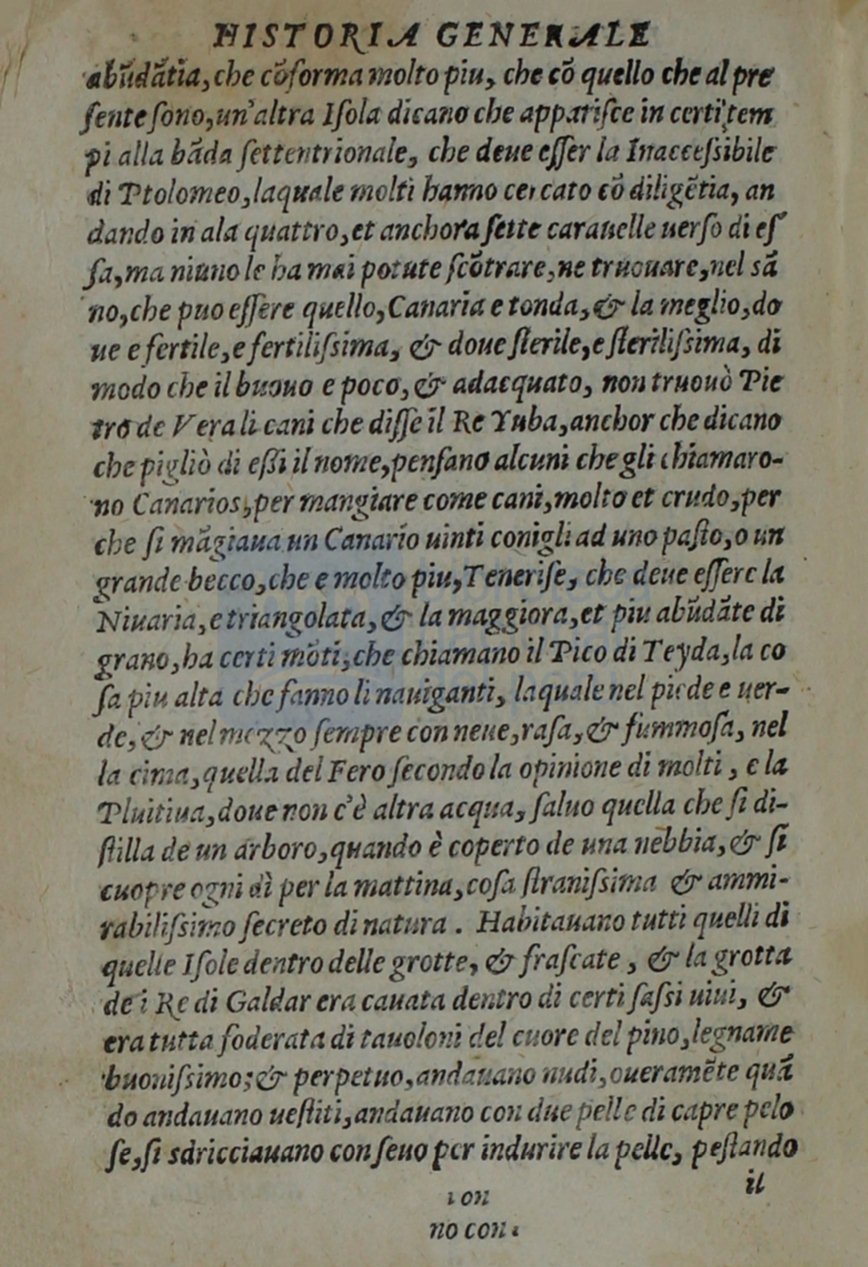 HISTORIA GENERALE
abũdãtia, che cõforma molto piu, che cõ quello che al pre
ſente ſono, un'altra Iſola dicano che appariſce in certi tem
pi alla bãda ſettentrionale, che deue eſſer la Inacceſsibile
di Ptolomeo, laquale molti hanno cercato cõ diligẽtia, an
dando in ala quattro, et anchora ſette carauelle uerſo di eſ
ſa, ma niuno le ha mai potute ſcõtrare, ne truouare, nel sã
no, che puo eſſere quello, Canaria e tonda, & la meglio, do
ue e fertile, e fertiliſsima, & doue ſterile, e ſteriliſsima, di
modo che il buono e poco, & adacquato, non truouò Pie
tro de Vera li cani che diſſe il Re Yuba, anchor che dicano
che pigliò di eſſi il nome, penſano alcuni che gli chiamaro-
no Canarios, per mangiare come cani, molto et crudo, per
che ſi mãgiaua un Canario uinti conigli ad uno paſto, o un
grande becco, che e molto piu, Tenerife, che deue eſſere la
Niuaria, e triangolata, & la maggiora, et piu abũdãte di
grano, ha certi mõti, che chiamano il Pico di Teyda, la co
ſa piu alta che fanno li nauiganti, laquale nel piede e uer-
de, & nel mezzo ſempre con neue, raſa, & fummoſa, nel
la cima, quella del Fero ſecondo la opinione di molti, e la
Pluitiua, doue non c'è altra acqua, ſaluo quella che ſi di-
ſtilla de un arboro, quando è coperto de una nebbia, & ſi
cuopre ogni dì per la mattina, coſa ſtraniſsima & ammi-
rabiliſsimo ſecreto di natura. Habitauano tutti quelli di
quelle Iſole dentro delle grotte, & fraſcate, & la grotta
de i Re di Galdar era cauata dentro di certi ſaſsi uiui, &
era tutta foderata di tauoloni del cuore del pino, legname
buoniſsimo; & perpetuo, andauano nudi, oueramẽte quã
do andauano ueſtiti, andauano con due pelle di capre pelo
ſe, ſi sdricciauano con ſeuo per indurire la pelle, peſtando
il
no con